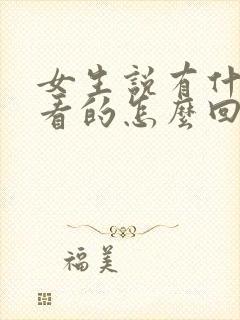 女生説有什
看的怎麼回
福美